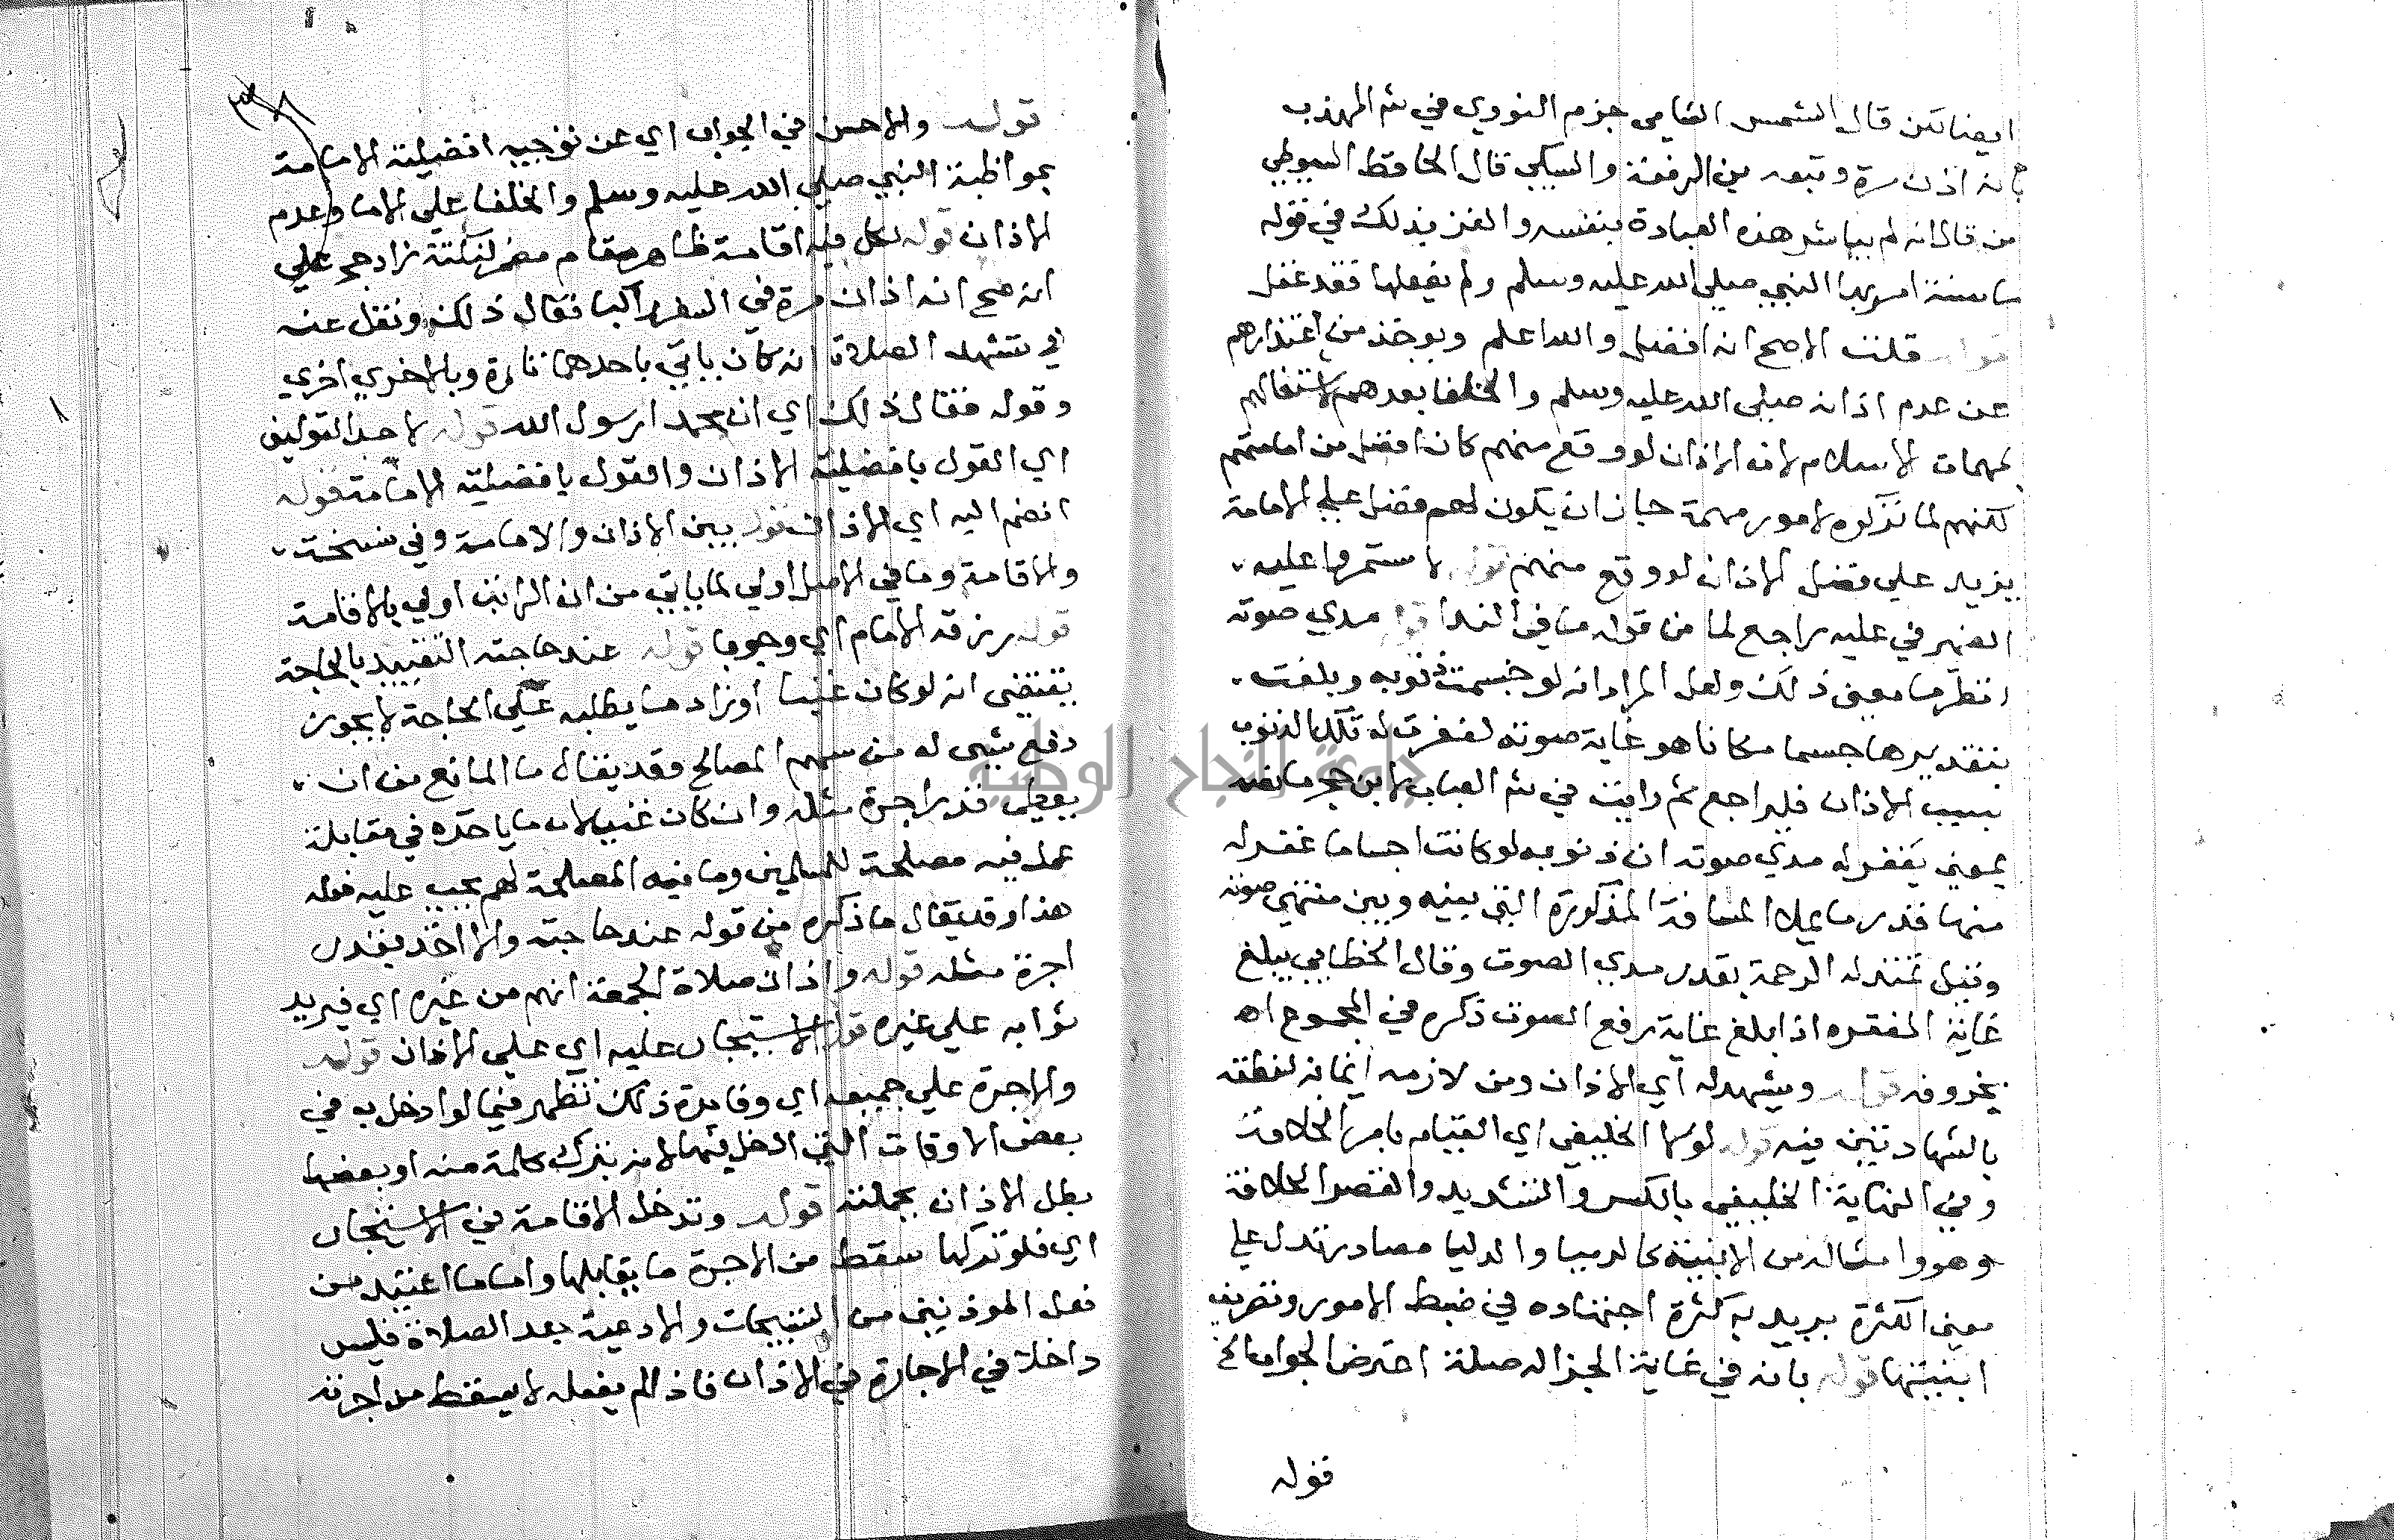 ايضا لكن قال الشمس الشامي جزم النووي في شم المهذب
بانه اذن مرة وتبعه بن الرفعة والسبكي قال الحافظ السيوطي
من قال انه لم يباشر هذه العبادة بنفسه والغز بذلك في قوله
ما سنة امر بها النبي صلى الله عليه وسلم ولم يفعلها فقد غفل
قوله قلت الاصح انه افضل والله اعلم ويوخذ من اعتذارهم
عن عدم اذانه صلي الله عليه وسلم والخلفا بعدهم لاشتغالهم
بمهمات الاسلام لان الاذان لو وقع منهم كان افضل من امامتهم
لكنهم لما تركوه لامور مهمة جاز ان يكون لهم فضل علي الامامة
يزيد علي فضل الاذان لو وقع منهم قوله لاستمرها عليه
الضمير في عليه راجع لما من قوله ما في الندا قوله مدي صوته
انظر ما معني ذلك ولعل المراد انه لو جسمت ذنوبه وبلغت
بتقديرها جسما مكانا هو غاية صوته لغفرت له تلك الذنوب
بسبب الاذان فليراجع ثم رايت في شم العباب لابن حجر ما نصه
بمعني يغفر له مدي صوته ان ذنوبه لو كانت اجساما غفر له
منها قدر ما يملا المسافة المذكورة التي بينه وبين منتهي صوته
وقيل تمتد له الرحمة بقدر مدي الصوت وقال الخطابي يبلغ
غاية المغفره اذا بلغ غاية رفع الصوت ذكره في المجموع اه
بحروفه قوله ويشهد له اي الاذان ومن لازمه ايمانه لنطقه
بالشهادتين فيه قوله لولا الخليفي اي القيام بامر الخلافة
وفي النهاية الخليفي بالكسر والتشديد والقصر الخلافة
وهو وامثاله من الابنية كالرميا والدليا مصادر تدل علي
معني الكثرة يريد به كثرة اجتهاده في ضبط الامور وتصريف
ابنيتها قوله بانه في غاية الجزاله صلة اعترض الجواب الخ
قوله
قوله والاحسن في الجواب اي عن توجيه افضلية الامامة
بمواظبة النبي صلي الله عليه وسلم والخلفا علي الاما وعدم
الاذان قوله لكل فيه اقامة ظاهر مقام مضمر لنكتة زاد حج علي
انه صح انه اذان مرة في السفر راكبا فقال ذلك ونقل عنه
في تشهد الصلاة انه كان ياتي باحدهما تارة وبالاخري اخري
وقوله فقال ذلك اي ان محمدا رسول الله قوله لاحد القولين
اي القول بافضلية الاذان والقول بافضلية الامامة قوله
انضم اليه اي الاذان قوله بين الاذان والامامة وفي نسخة
والاقامة وما في الاصل اولي لما ياتي من ان الراتب اولي بالاقامة
قوله رزقه الامام اي وجوبا قوله عند حاجته التقييد بالحاجة
يقتضي انه لو كان غنيا او زاد ما يطلبه علي الحاجة لا يجوز
دفع شيى له من سهم المصالح وقد يقال ما المانع من ان
يعطى قدر اجرة مثله وان كان غنيا لان ما ياخذه في مقابلة
عمل فيه مصلحة للمسلمين وما فيه المصلحة لهم يجب عليه فعله
هذا وقد يقال ما ذكره من قوله عند حاجته والا اخذ بقدر
اجرة مثله قوله واذان صلاة الجمعة انهم من غيره اي فيزيد
ثوابه علي غيره قوله الاستيجار عليه اي علي الاذان قوله
والاجرة علي جميعه اي وفايدة ذلك تظهر فيما لو ادخل به في
بعض الاوقات التي الخل فيها لانه بترك كلمة منه او بعضها
بطل الاذان بجملته قوله وتدخل الاقامة في الاستيجار
اي فلو تركها سقط من الاجرة ما يقابلها واما ما اعتيد من
فعل الموذنين من التسبيحات والادعية بعد الصلاة فليس
داخلا في الاجارة في الاذان فاذا لم يفعله لا يسقط من اجرته